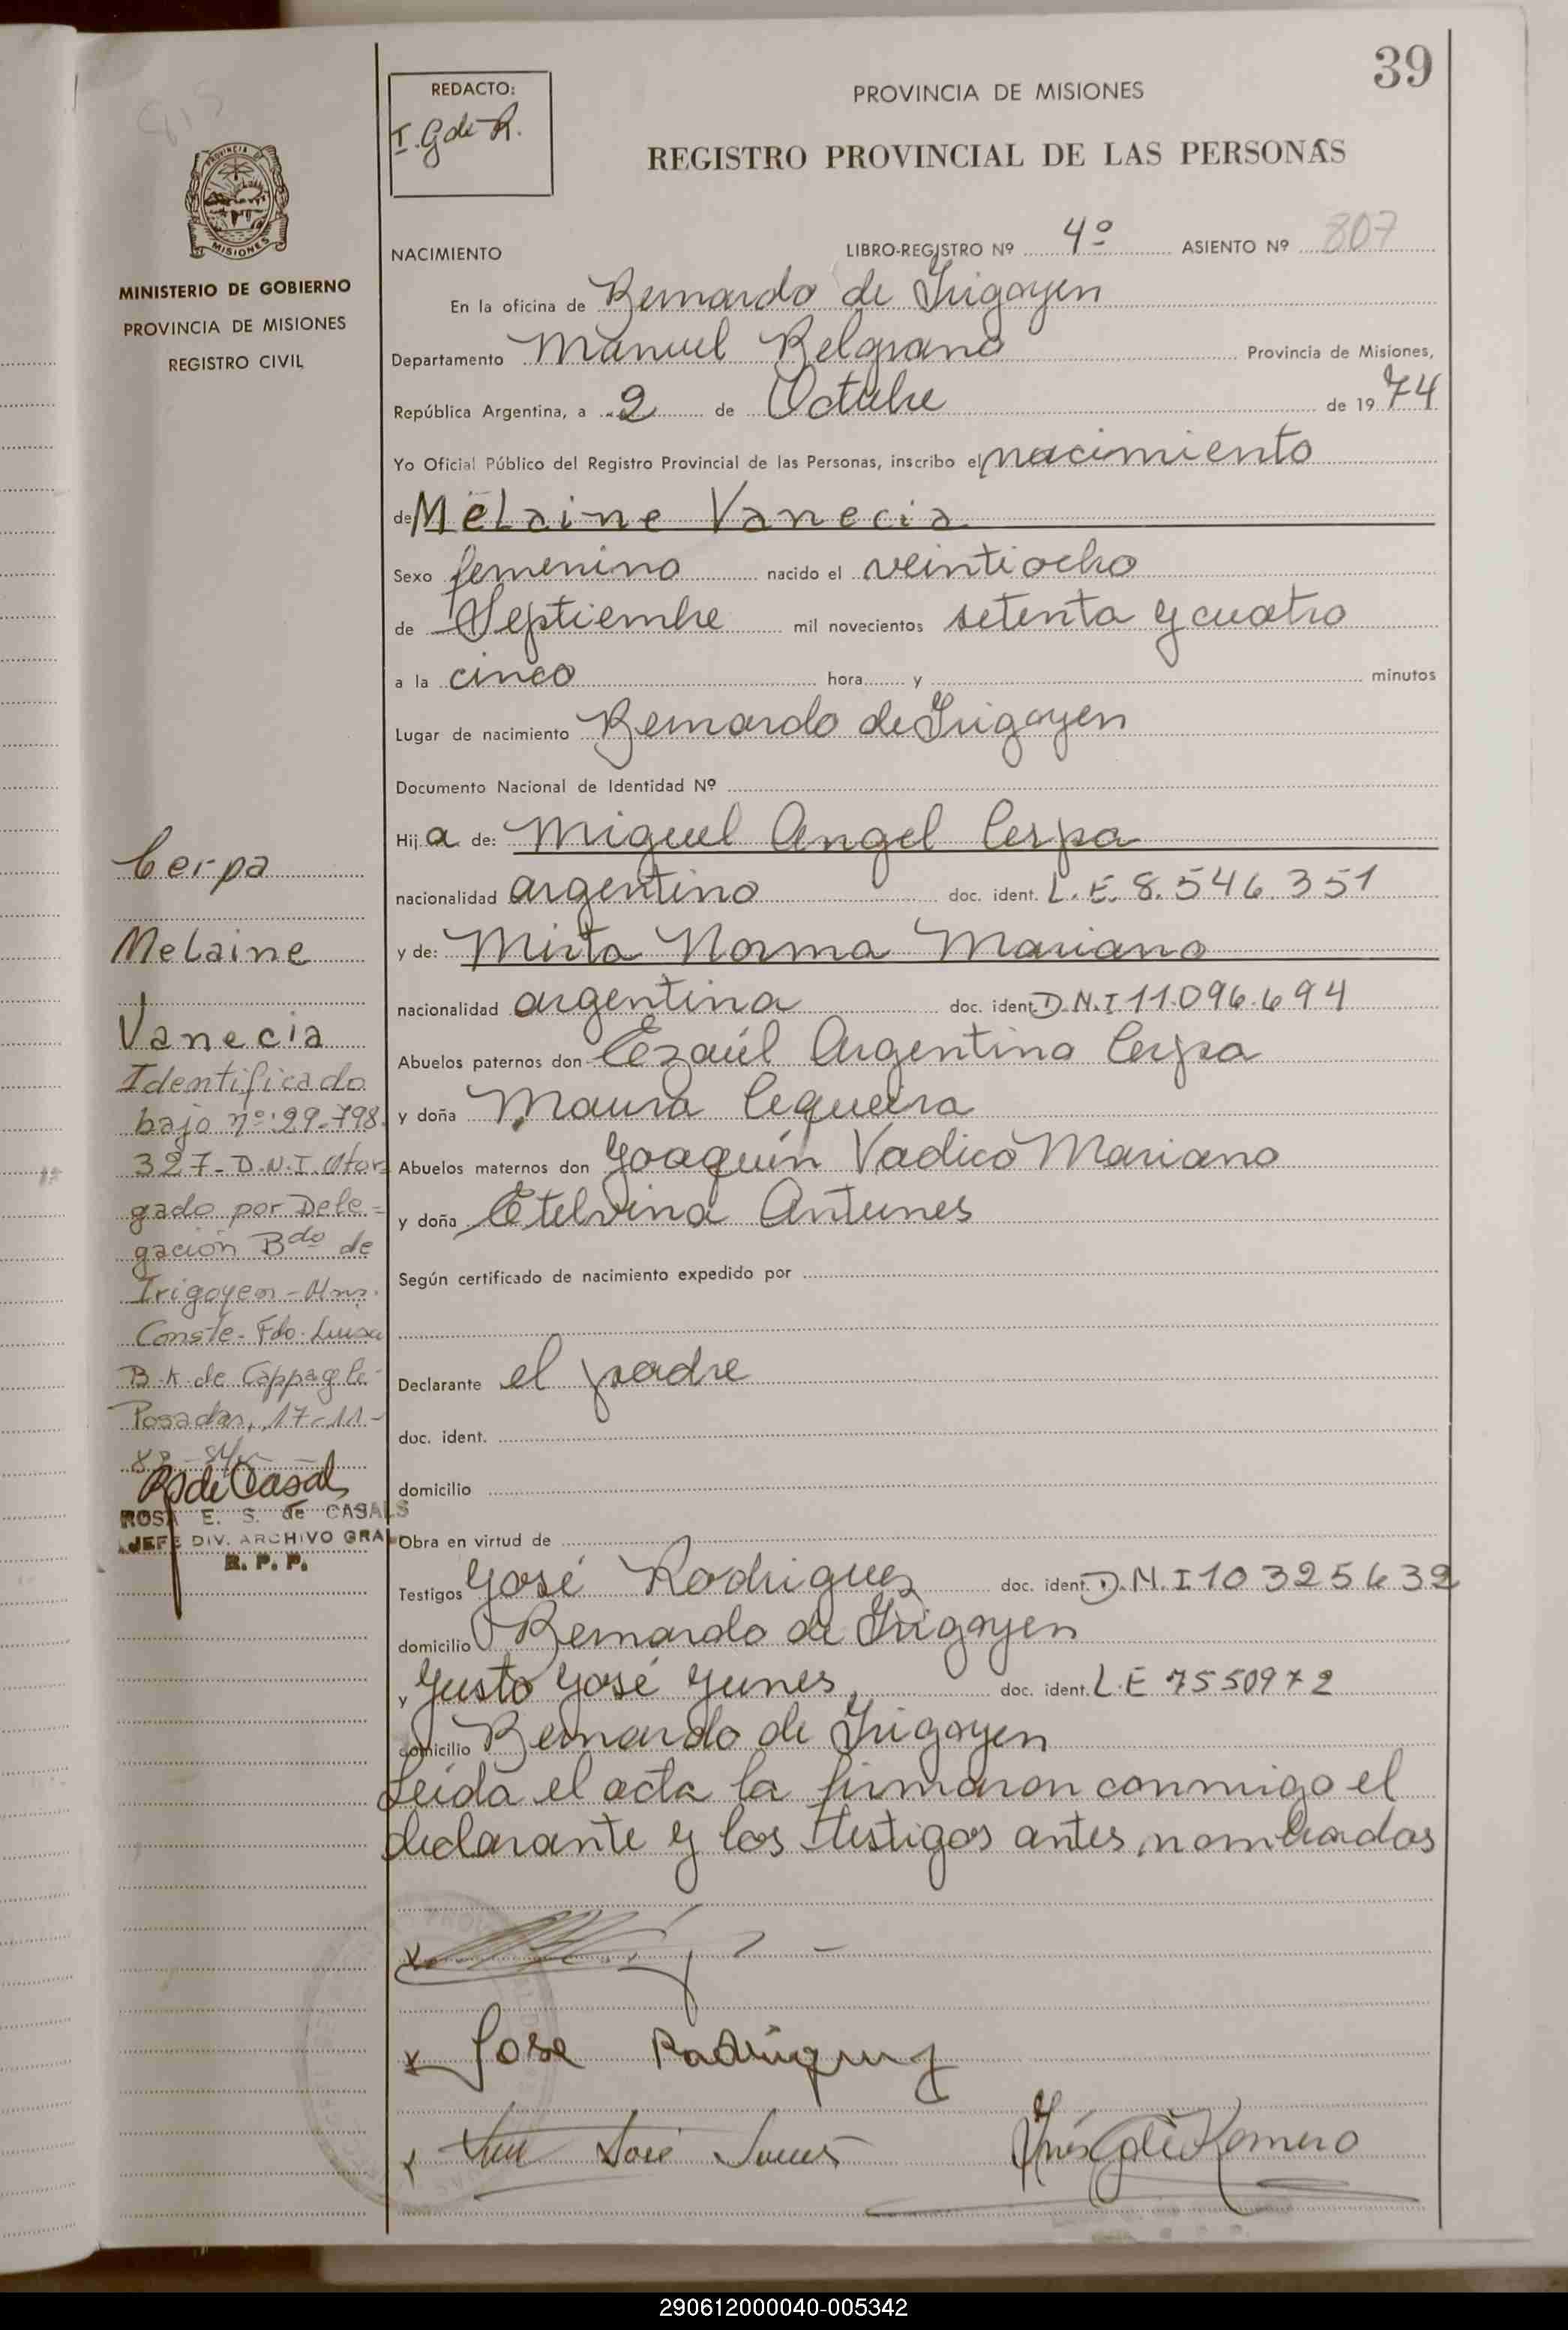 39
REDACTO:
I. G de R.
PROVINCIA DE MISIONES
REGISTRO PROVINCIAL DE LAS PERSONAS
PROVINCIA DE
MISIONES
MINISTERIO DE GOBIERNO
PROVINCIA DE MISIONES
REGISTRO CIVIL
NACIMIENTO LIBRO-REGISTRO Nº 4º ASIENTO Nº 807
En la oficina de Bernardo de Irigoyen
Departamento Manuel Belgrano Provincia de Misiones,
República Argentina, a 2 de Octubre de 1974
Yo Oficial Público del Registro Provincial de las Personas, inscribo el nacimiento
de Melaine Vanecia
Sexo femenino nacido el veintiocho
de Septiembre mil novecientos setenta y cuatro
a la cinco hora y minutos
Lugar de nacimiento Bernardo de Irigoyen
Documento Nacional de Identidad Nº
Hija de: Miguel Angel Cerpa
nacionalidad argentino doc. ident. L.E. 8.546.351
y de: Mirta Norma Mariano
nacionalidad argentina doc. ident. D.N.I 11.096.694
Abuelos paternos don Ezaúl Argentino Cerpa
y doña Maura Cequeira
Abuelos maternos don Joaquín Vadico Mariano
y doña Etelvina Antunes
Según certificado de nacimiento expedido por
Declarante el padre
doc. ident.
domicilio
Obra en virtud de
Testigos José Rodriguez doc. ident. D.N.I 10325632
domicilio Bernardo de Irigoyen
y Justo José Junes, doc. ident. L.E 7550972
domicilio Bernardo de Irigoyen
Leída el acta la firmaron conmigo el
declarante y los testigos antes nombrados
Jose Rodriguez
José Junes
Inés G de Romero
Cerpa
Melaine
Vanecia
Identificado
bajo nº: 29.798.
327- D.N.I. Otor=
gado por Dele=
gación Bdo de
Irigoyen - Mns.
Conste- Fdo. Luisa
B.K. de Cappagli-
Posadas, 17-11-
88-
R de Casals
ROSA E. S. de CASALS
JEFE DIV. ARCHIVO GRAL
R. P. P.
290612000040-005342